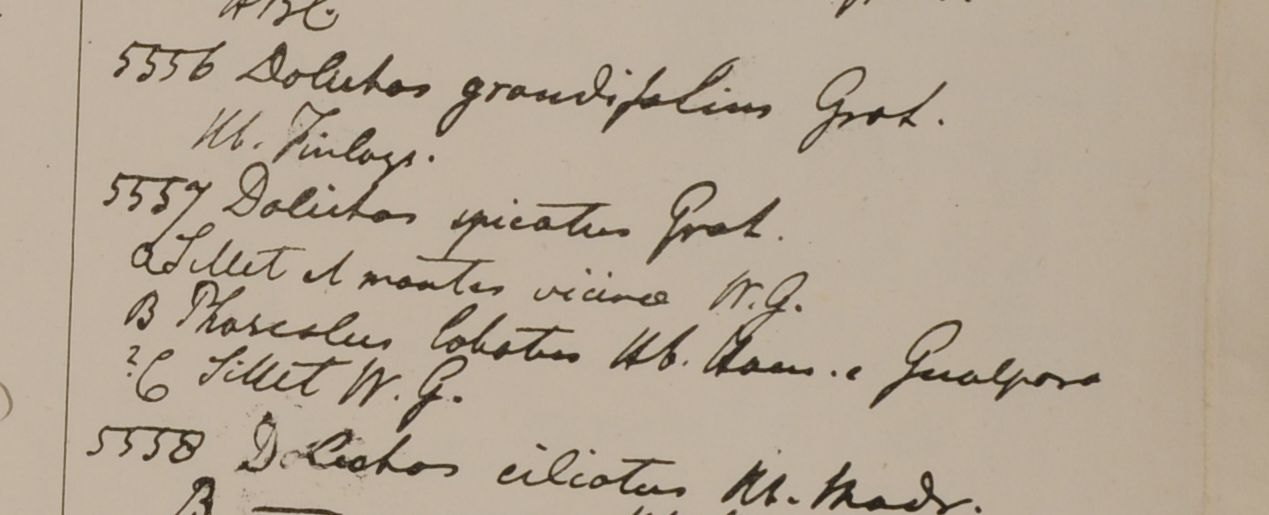 5556 Dolichos grandifolius Grah.
Hb. Finlays.
5557 Dolichos spicatus Grah.
a Sillet et montes vicinae W.G.
B Phaseolus lobatus Hb. Ham. e Gualpara
? C Sillet W. G.
5558 Dolichos ciliatus Hb. Madr.
B